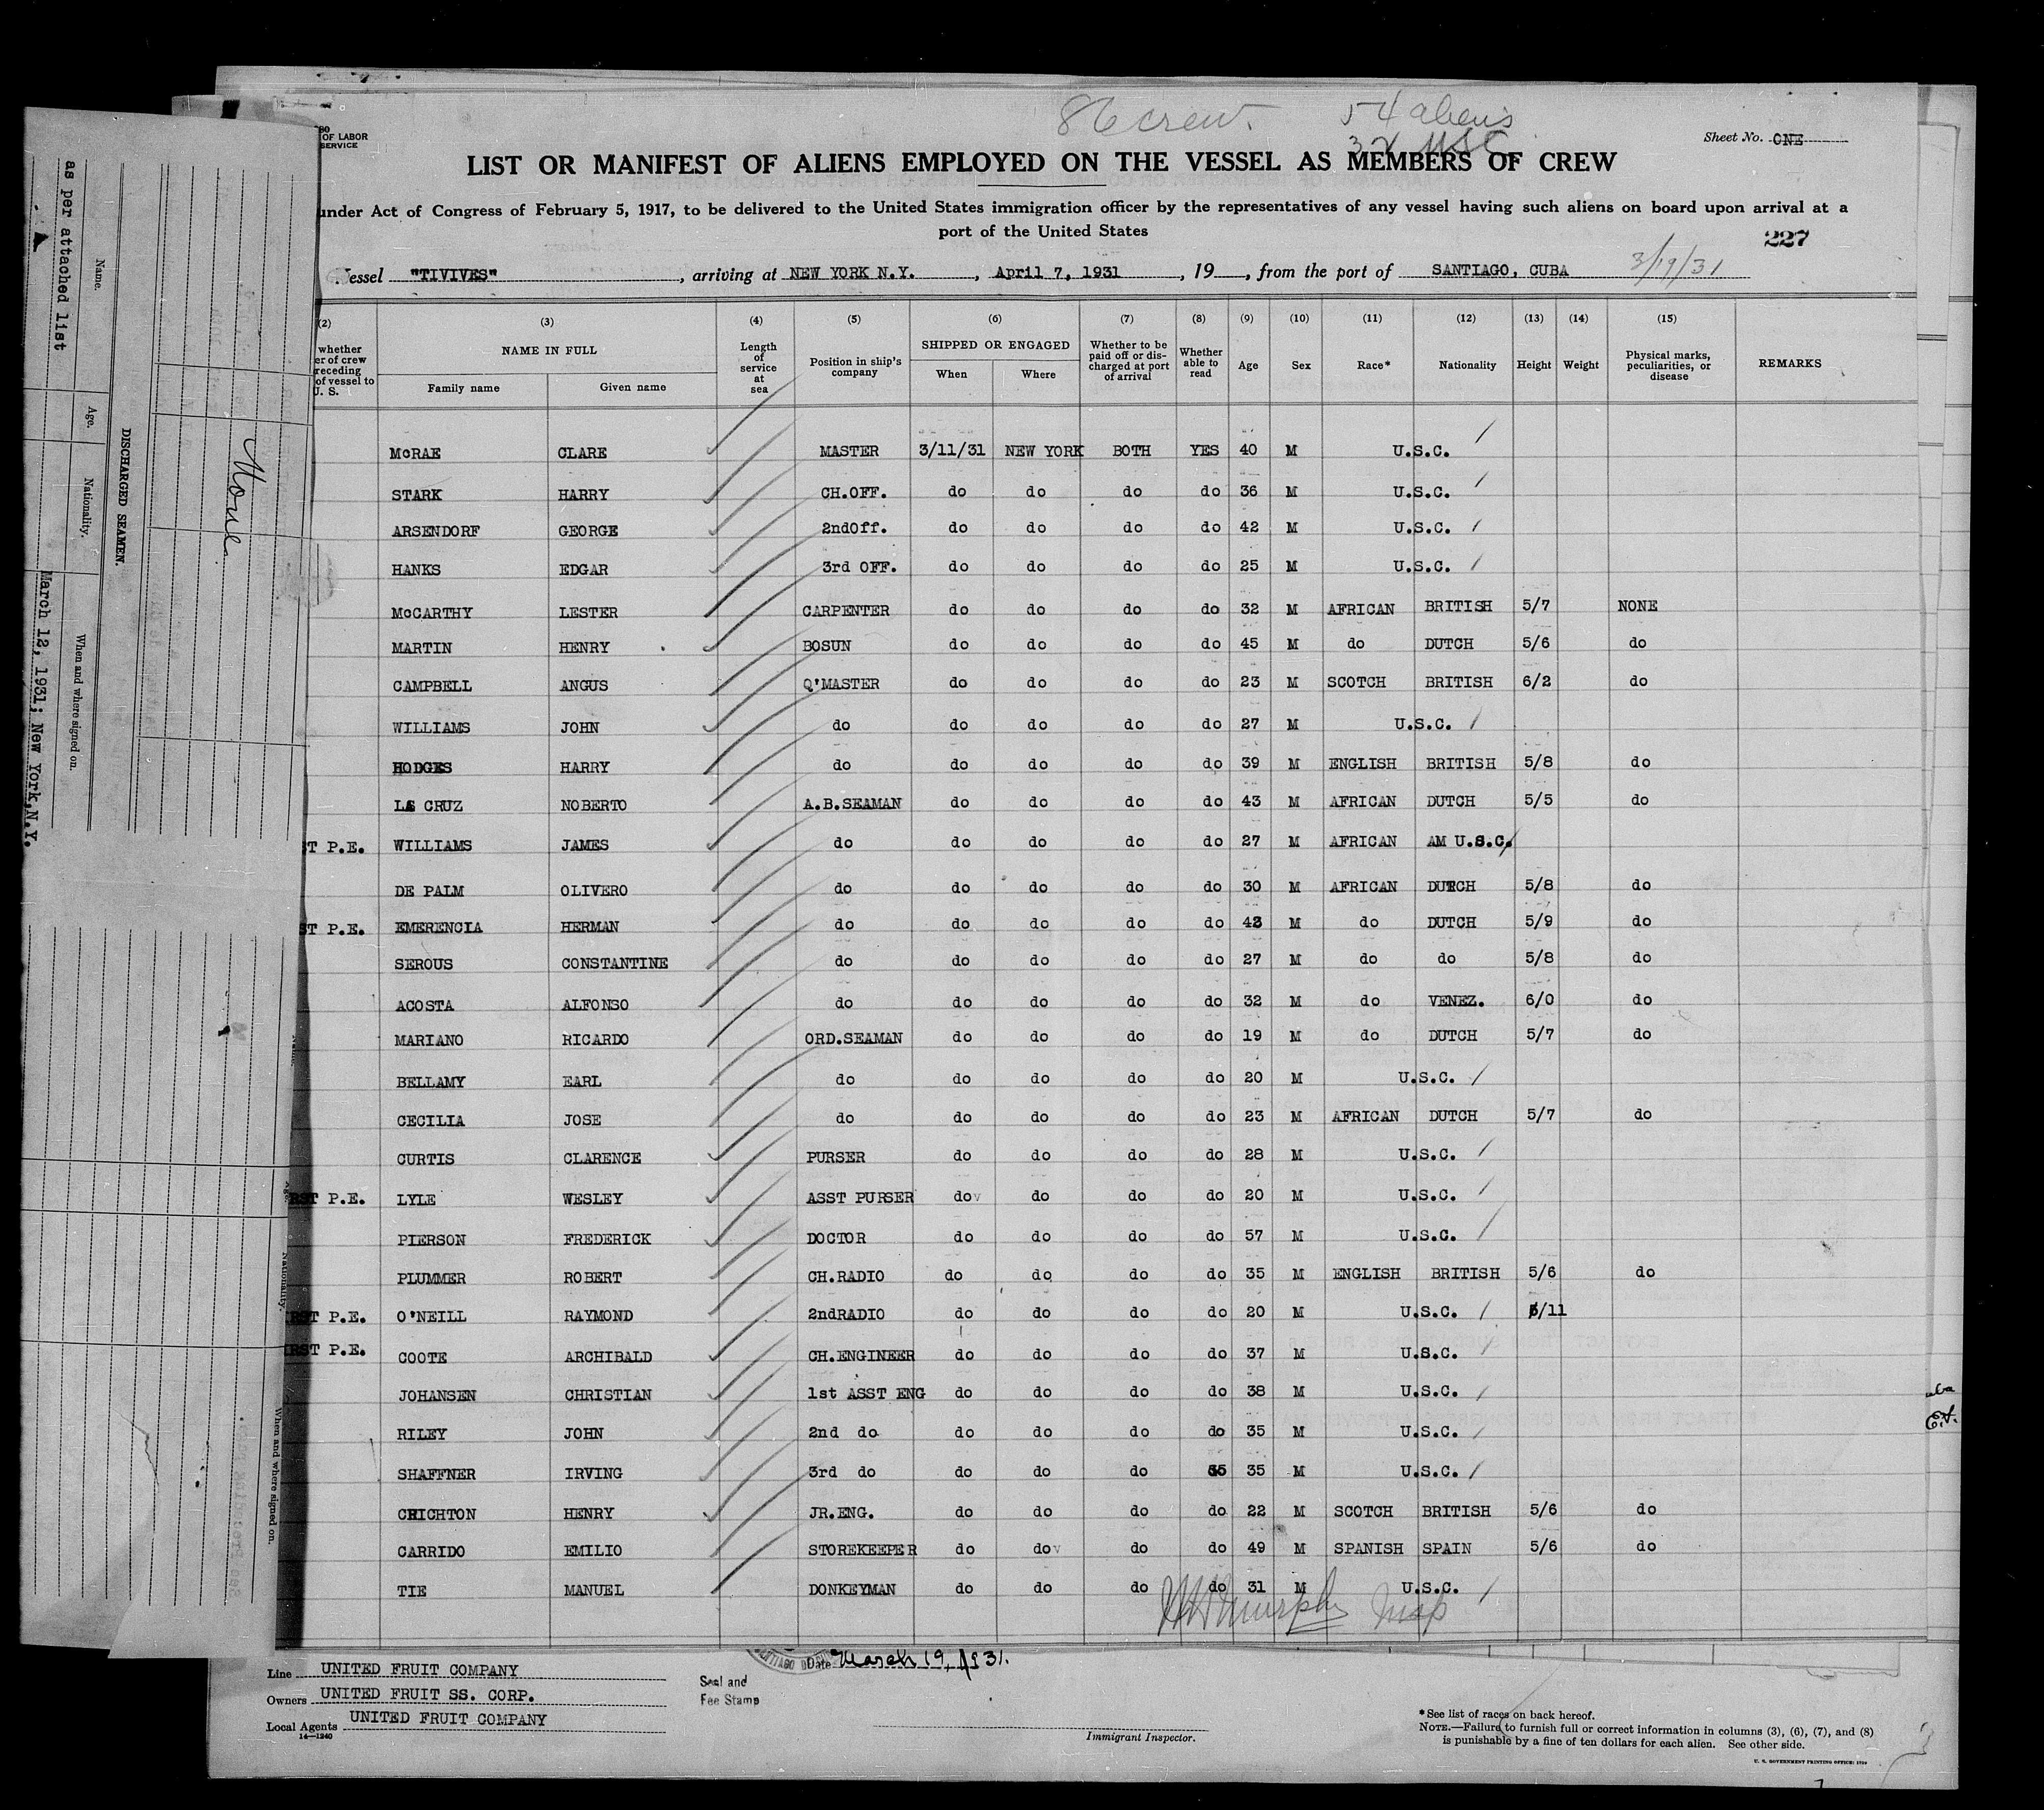 86 crew. 54 aliens
32 USC
OF LABOR
SERVICE
Sheet No. ONE
LIST OR MANIFEST OF ALIENS EMPLOYED ON THE VESSEL AS MEMBERS OF CREW
under Act of Congress of February 5, 1917, to be delivered to the United States immigration officer by the representatives of any vessel having such aliens on board upon arrival at a
port of the United States
227
Vessel "TIVIVES", arriving at NEW YORK N.Y., April 7, 1931, 19, from the port of SANTIAGO, CUBA 3/19/31
(2) (3) (4) (5) (6) (7) (8) (9) (10) (11) (12) (13) (14) (15)
whether
er of crew
receding
of vessel to
U. S.
NAME IN FULL
Family name Given name
Length of service at sea
Position in ship's company
SHIPPED OR ENGAGED
When Where
Whether to be paid off or discharged at port of arrival
Whether able to read
Age Sex Race* Nationality Height Weight
Physical marks, peculiarities, or disease
REMARKS
McRAE CLARE MASTER 3/11/31 NEW YORK BOTH YES 40 M U.S.C.
STARK HARRY CH.OFF. do do do do 36 M U.S.C.
ARSENDORF GEORGE 2ndOff. do do do do 42 M U.S.C.
HANKS EDGAR 3rd OFF. do do do do 25 M U.S.C.
McCARTHY LESTER CARPENTER do do do do 32 M AFRICAN BRITISH 5/7 NONE
MARTIN HENRY BOSUN do do do do 45 M do DUTCH 5/6 do
CAMPBELL ANGUS Q'MASTER do do do do 23 M SCOTCH BRITISH 6/2 do
WILLIAMS JOHN do do do do do 27 M U.S.C.
HODGES HARRY do do do do do 39 M ENGLISH BRITISH 5/8 do
CRUZ NOBERTO A.B.SEAMAN do do do do 43 M AFRICAN DUTCH 5/5 do
ST P.E. WILLIAMS JAMES do do do do do 27 M AFRICAN AM U.S.C.
DE PALM OLIVERO do do do do do 30 M AFRICAN DUTCH 5/8 do
ST P.E. EMERENCIA HERMAN do do do do do 42 M do DUTCH 5/9 do
SEROUS CONSTANTINE do do do do do 27 M do do 5/8 do
ACOSTA ALFONSO do do do do do 32 M do VENEZ. 6/0 do
MARIANO RICARDO ORD.SEAMAN do do do do 19 M do DUTCH 5/7 do
BELLAMY EARL do do do do do 20 M U.S.C.
CECILIA JOSE do do do do do 23 M AFRICAN DUTCH 5/7 do
CURTIS CLARENCE PURSER do do do do 28 M U.S.C.
RST P.E. LYLE WESLEY ASST PURSER do do do do 20 M U.S.C.
PIERSON FREDERICK DOCTOR do do do do 57 M U.S.C.
PLUMMER ROBERT CH.RADIO do do do do 35 M ENGLISH BRITISH 5/6 do
RST P.E. O'NEILL RAYMOND 2ndRADIO do do do do 20 M U.S.C. 5/11
RST P.E. COOTE ARCHIBALD CH.ENGINEER do do do do 37 M U.S.C.
JOHANSEN CHRISTIAN 1st ASST ENG do do do do 38 M U.S.C.
RILEY JOHN 2nd do do do do do 35 M U.S.C.
SHAFFNER IRVING 3rd do do do do 35 M U.S.C.
CRICHTON HENRY JR.ENG. do do do do 22 M SCOTCH BRITISH 5/6 do
CARRIDO EMILIO STOREKEEPER do do do do 49 M SPANISH SPAIN 5/6 do
TIE MANUEL DONKEYMAN do do do do 31 M U.S.C.
Murphy Insp
Date March 19, 1931.
Line UNITED FRUIT COMPANY
Owners UNITED FRUIT SS. CORP.
Local Agents UNITED FRUIT COMPANY
14—1240
Seal and
Fee Stamp
Immigrant Inspector.
*See list of races on back hereof.
NOTE.—Failure to furnish full or correct information in columns (3), (6), (7), and (8)
is punishable by a fine of ten dollars for each alien. See other side.
DISCHARGED SEAMEN.
Name. Age. Nationality. When and where signed on.
as per attached list March 12, 1931; New York,N.Y.
None.
Nationality. When and where signed on.